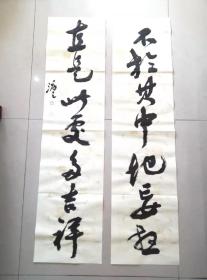 不於其中起妄想
直是此處多吉祥